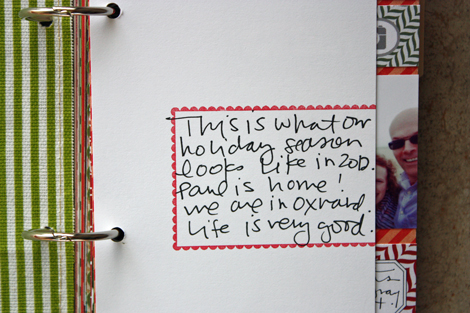 This is what our
holiday season
looks like in 2010.
Paul is home!
we are in oxnard.
Life is very good.